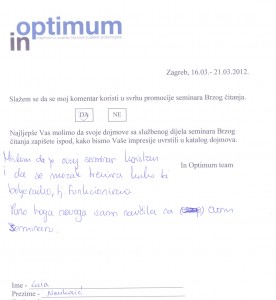 optimum
in
Zagreb, 16.03.- 21.03.2012.
Slažem se da se moj komentar koristi u svrhu promocije seminara Brzog čitanja.
DA NE
Najljepše Vas molimo da svoje dojmove sa službenog dijela seminara Brzog
čitanja zapišete ispod, kako bismo Vaše impresije uvrstili u katalog dojmova.
In Optimum team
Mislim da je ovaj seminar koristan
i da se mozak trenira kako bi
bolje radio, tj funkcionirao.
Puno toga novoga sam naučila na ovom
seminaru.
Ime -
Prezime -